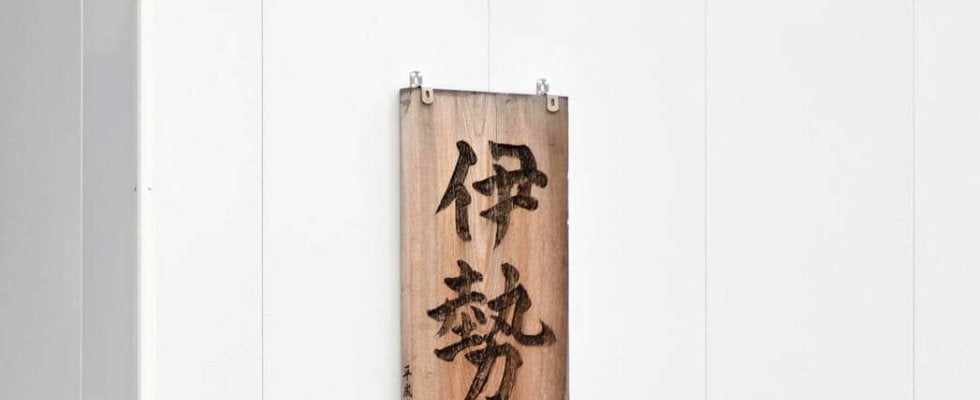 伊勢
平成